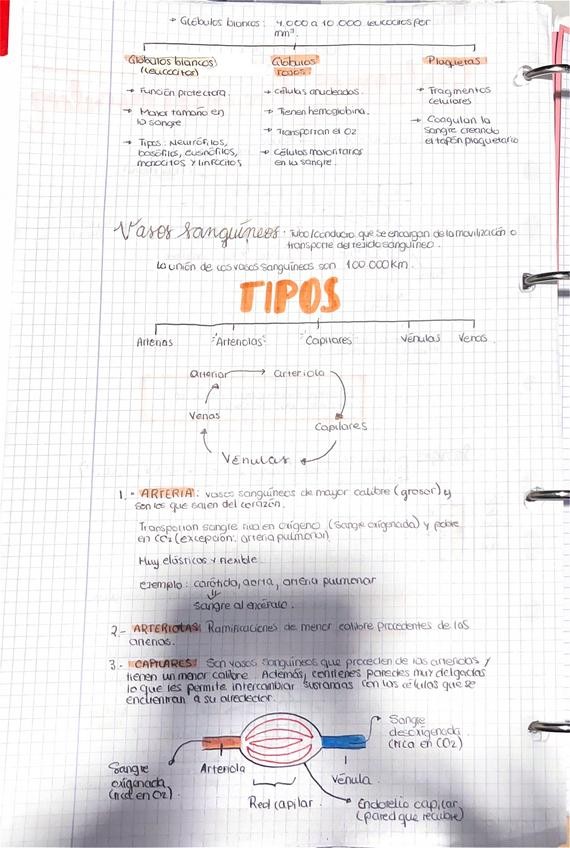 → Glóbulos blancos: 4.000 a 10.000 leucocitos por
mm³.
Glóbulos blancos
(leucocitos)
→ Función protectora.
→ Mayor tamaño en
la sangre
→ Tipos: Neutrófilos,
basófilos, eusinófilos,
monocitos y linfocitos
Glóbulos
rojos
→ Células anucleadas.
→ Tienen hemoglobina.
→ Transportan el O2
→ Células mayoritarias
en la sangre.
Plaquetas
→ Fragmentos
celulares
→ Coagulan la
sangre creando
el tapón plaquetario
Vasos sanguíneos: Tubo/conducto que se encargan de la movilización o
transporte del tejido sanguíneo.
La unión de los vasos sanguíneos son 100 000 km.
TIPOS
Arterias Arteriolas Capilares Vénulas Venas
Arteriar → arteriola
Venas
Capilares
Vénulas
1.- ARTERIA: vasos sanguíneos de mayor calibre (grosor) y
son los que salen del corazón.
Transportan sangre rica en oxígeno (sangre oxigenada) y pobre
en CO2 (excepción: arteria pulmonar)
Muy elásticos y flexible
ejemplo: carótida, aorta, arteria pulmonar
⇓
sangre al encéfalo.
2.- ARTERIOLAS: Ramificaciones de menor calibre procedentes de las
arterias.
3.- CAPILARES: Son vasos sanguíneos que proceden de las arteriolas y
tienen un menor calibre. Además, contienen paredes muy delgadas
lo que les permite intercambiar sustancias con las células que se
encuentran a su alrededor.
Sangre
desoxigenada
(rica en CO2)
Sangre
oxigenada
(rica en O2)
Arteriola
Vénula
Red capilar
Endotelio capilar
(pared que recubre)